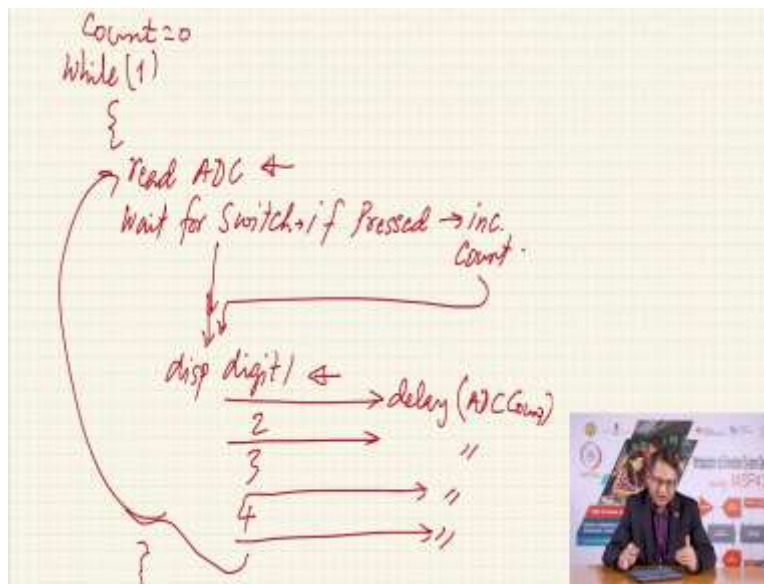 Count=0
While(1)
{
read ADC ←
Wait for Switch → if Pressed → inc.
Count.
disp digit 1 ← → delay (ADC Count)
2 → "
3 → "
4 → "
}
MSP43